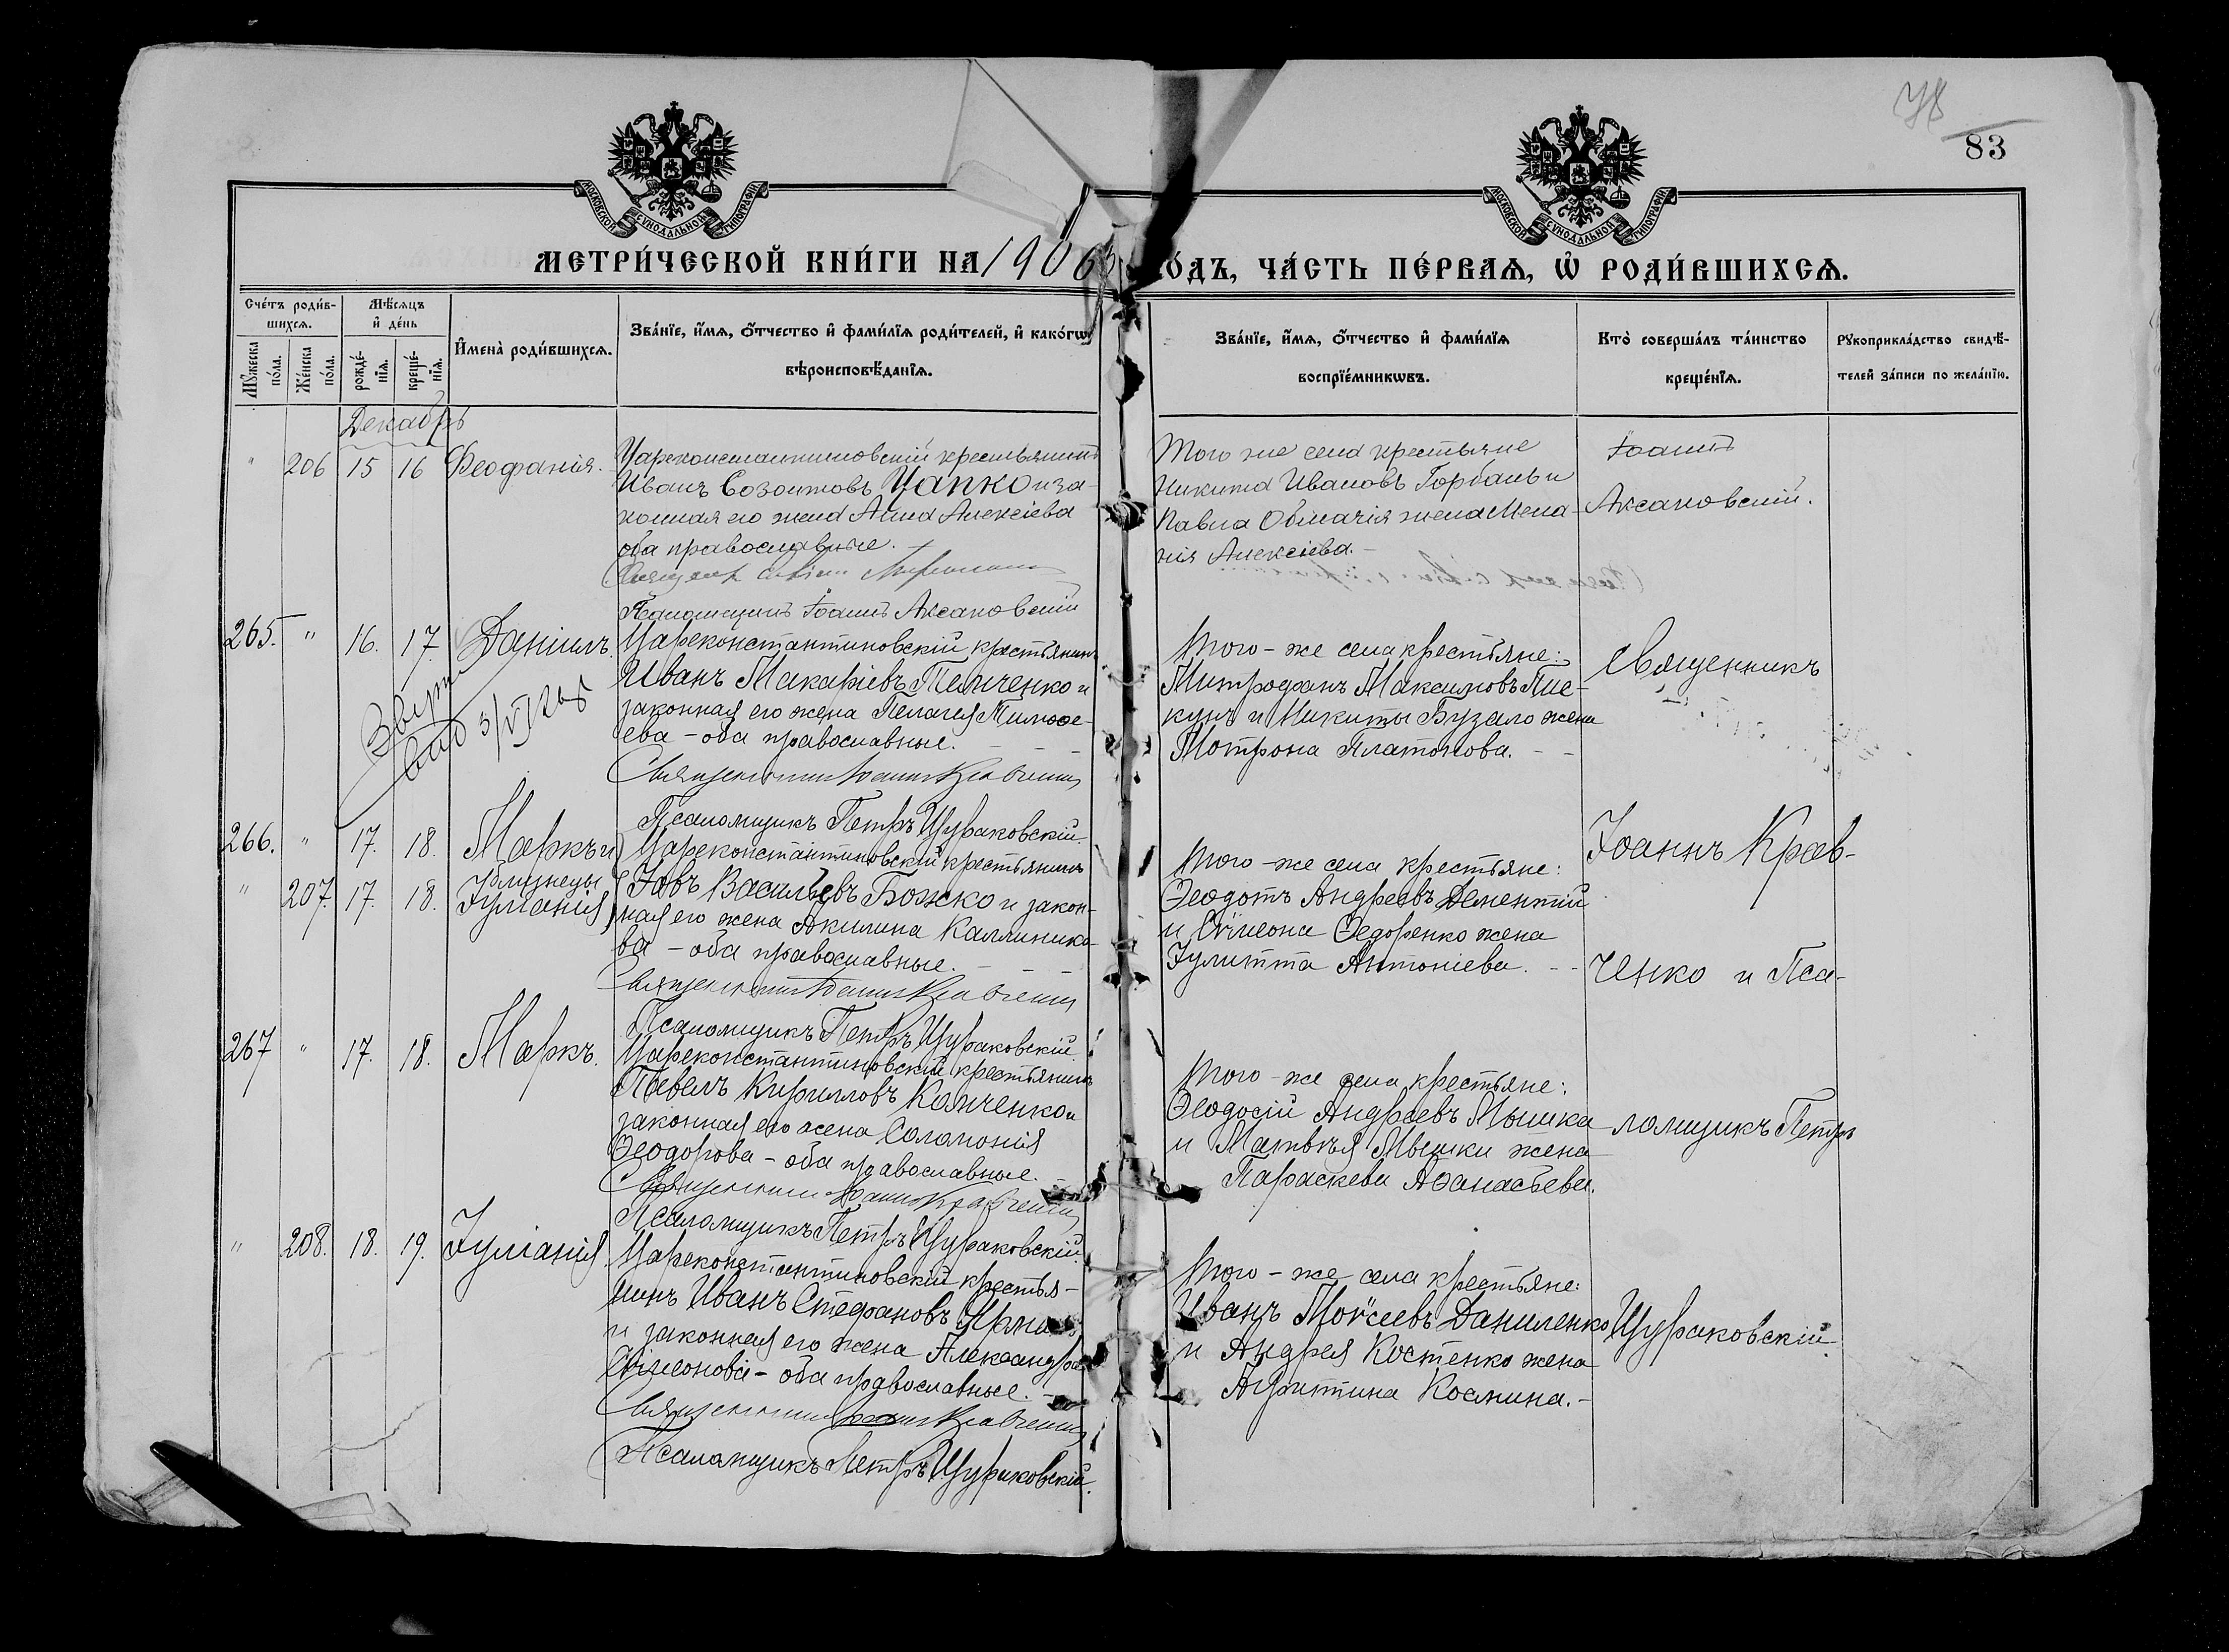 83
МОСКОВСКОЙ СѴНОДАЛЬНОЙ ТИПОГРАФІИ
МОСКОВСКОЙ СѴНОДАЛЬНОЙ ТИПОГРАФІИ
МЕТРИ́ЧЕСКОЙ КНИ́ГИ НА 1906
О́ДЪ, ЧА́СТЬ ПЕ́РВАѦ, Ѡ҆ РОДИ́ВШИХСѦ.
Сче́тъ роди́в-
шихсѧ.
Мꙋ́жеска по́ла.
Же́нска по́ла.
Мѣ́сѧцъ
и҆ де́нь
рожде́-
нїѧ.
креще́-
нїѧ.
И҆мена̀ роди́вшихсѧ.
Зва́нїе, и҆́мѧ, ѻ҆́тчество и҆ фами́лїѧ роди́телей, и҆ како́гѡ
вѣроисповѣ́данїѧ.
Зва́нїе, и҆́мѧ, ѻ҆́тчество и҆ фами́лїѧ
воспрїе́мникѡвъ.
Кто̀ соверша́лъ та́инство
креще́нїѧ.
Рꙋкоприкла́дство свидѣ́-
телей за́писи по жела́нїю.
Декабрь
" 206 15 16 Феофанія.
Цареконстантиновскій крестьянинъ
Иванъ Созонтовъ Цапко и за-
конная его жена Анна Алексіева
оба православные.
Псаломщикъ Іоаннъ Аксановскій
Того же села крестьяне
Никита Ивановъ Горбань и
Павла жена Мела-
нія Алексіева.
Іоаннъ
Аксановскій.
265. " 16. 17. Даніилъ.
Цареконстантиновскій крестьянинъ
Иванъ Макаріевъ Темченко и
законная его жена Пелагея Тимофе-
ева - оба православные.
Священникъ Іоаннъ Кравченко
Псаломщикъ Петръ Цураковскій.
Того-же села крестьяне:
Митрофанъ Максимовъ
и Никиты Бузало жена
Мотрона Платонова.
Священникъ
266. " 17. 18. Маркъ и
близнецы
" 207. 17. 18. Іуліанія
Цареконстантиновскій крестьянинъ
Іовъ Васильевъ Божко и закон-
ная его жена Акилина Каллинико-
ва - оба православные.
Священникъ Іоаннъ Кравченко
Псаломщикъ Петръ Цураковскій.
Того-же села крестьяне:
Ѳеодотъ Андреевъ Дементій
и Сѵмеона Ѳедоренко жена
Іулитта Антоніева.
Іоаннъ Крав-
ченко и Пса-
267 " 17. 18. Маркъ.
Цареконстантиновскій крестьянинъ
Павелъ Кирилловъ Камченко и
законная его жена Соломонія
Ѳеодорова - оба православные.
Священникъ Іоаннъ Кравченко
Псаломщикъ Петръ Цураковскій.
Того-же села крестьяне:
Ѳеодосій Андреевъ Мышка
и Матѳея Мышки жена
Параскева Аѳанасьева.
ломщикъ Петръ
" 208. 18. 19. Іуліанія.
Цареконстантиновскій крестья-
нинъ Иванъ Стефановъ
и законная его жена Александра
Сѵмеонова - оба православные.
Священникъ Іоаннъ Кравченко
Псаломщикъ Петръ Цураковскій.
Того-же села крестьяне:
Иванъ Моѵсеевъ Даниленко
и Андрея Костенко жена
Агриппина Космина.
Цураковскій